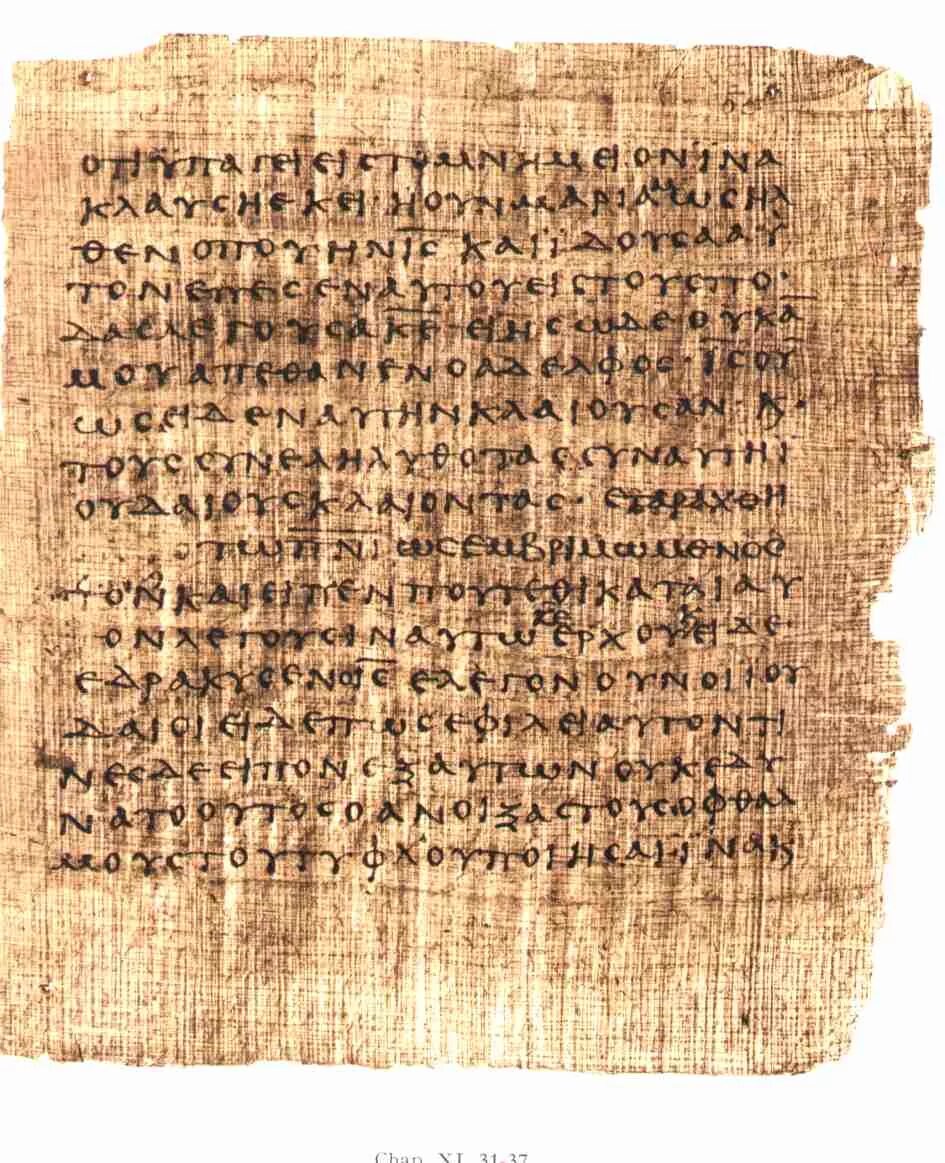 οτι ϋπαγει εις το μνημειον ϊνα
κλαυση εκει· η ουν μαριαμ ως ηλ
θεν οπου ην ις̅ και ϊδουσα αυ
τον επεσεν αυτου εις τους πο·
δας λεγουσα κε̅ ει ης ωδε ουκ α̅
μου απεθανεν ο αδελφος· ις̅ ου̅
ως ειδεν αυτην κλαιουσαν· κ·
τους συνεληλυθοτας συν αυτη ϊ
ουδαιους κλαιοντας· εταραχθη
τω πνι̅ ως εμβριμωμενος
και ειπεν που τεθικατε αυ
ον λεγουσιν αυτω κε̅ ερχου κ ειδε·
εδρακυσεν ο ις̅ ελεγον ουν οι ϊου
δαιοι ειδε πως εφιλει αυτον τι
νες δε ειπον εξ αυτων ουκ εδυ
νατο ουτος ο ανοιξας τους οφθαλ
μους του τυφλου ποιησαι ϊνα κ
Chap. XI, 31-37